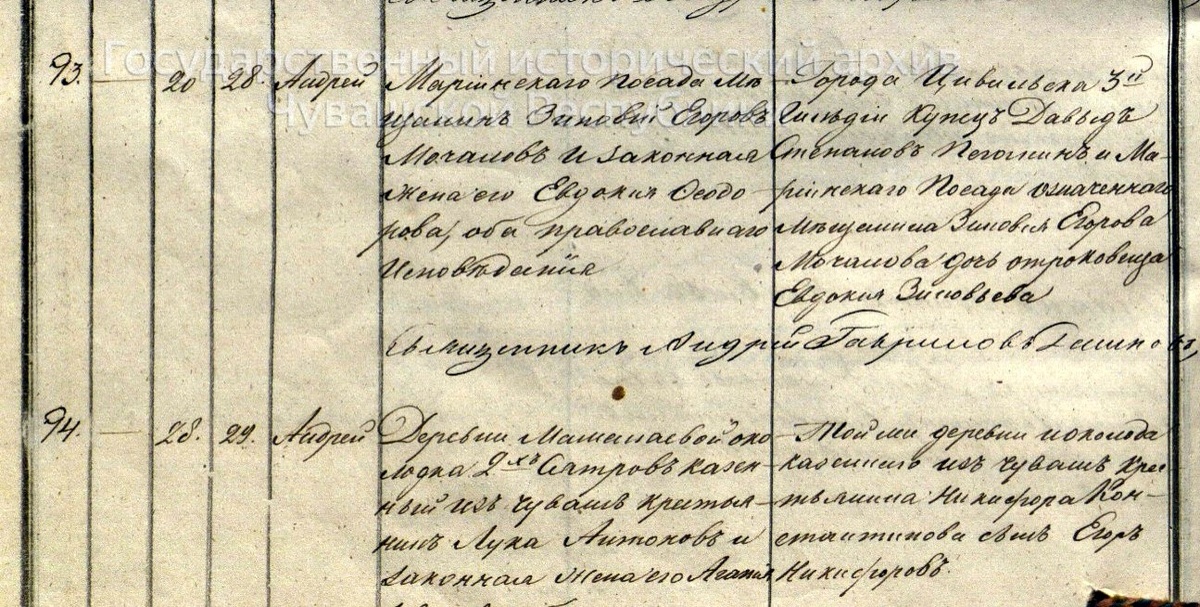 Государственный исторический архив
Чувашской Республики
93. — 20 28. Андрей
Маріинскаго Посада Мѣ-
щанинъ Зиновій Егоровъ
Мочаловъ и законная
жена его Евдокія Ѳеодо-
рова, оба православнаго
Исповѣданія
Города Цивильска 3й
Гильдіи Купецъ Давыдъ
Степановъ и Ма-
ріинскаго Посада означеннаго
Мѣщанина Зиновья Егорова
Мочалова дочь отроковица
Евдокія Зиновьева
Священникъ Андрей Гавриловъ
94. — 28. 29. Андрей
Деревни око-
лодка 2хъ Сятровъ казен-
ный изъ чувашъ крестья-
нинъ Лука Антоновъ и
законная жена его Агаѳія
Той же деревни и околодка
казеннаго изъ чувашъ крес-
тьянина Никифора Кон-
стантинова сынъ Егоръ
Никифоровъ.